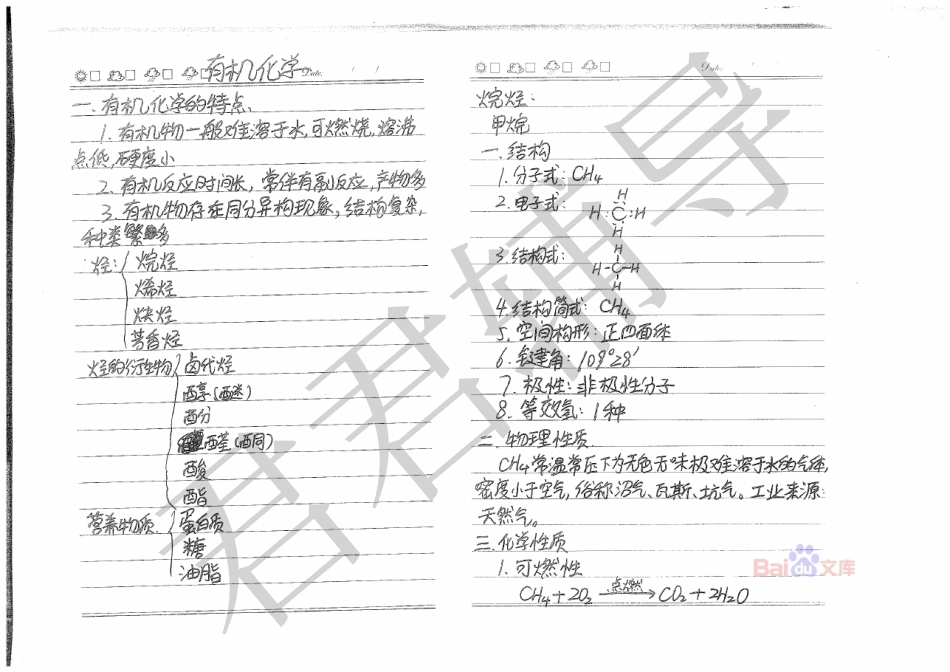 有机化学 Date:
一.有机化学的特点、
1.有机物一般难溶于水,可燃烧,熔沸
点低,硬度小
2.有机反应时间长,常伴有副反应,产物多
3.有机物存在同分异构现象,结构复杂,
种类繁多
烃: 烷烃
烯烃
炔烃
芳香烃
烃的衍生物 卤代烃
醇(醚)
酚
醛(酮)
酸
酯
营养物质 蛋白质
糖
油脂
Date:
烷烃:
甲烷
一.结构
1.分子式:CH4
2.电子式: H
H:C:H
H
3.结构式: H
H-C-H
H
4.结构简式: CH4
5.空间构形:正四面体
6.键角:109°28'
7.极性:非极性分子
8.等效氢:1种
二.物理性质
CH4常温常压下为无色无味极难溶于水的气体,
密度小于空气,俗称沼气、瓦斯、坑气。工业来源:
天然气。
三.化学性质
1.可燃性
CH4+2O2 点燃→ CO2+2H2O
君君辅导
Baidu文库